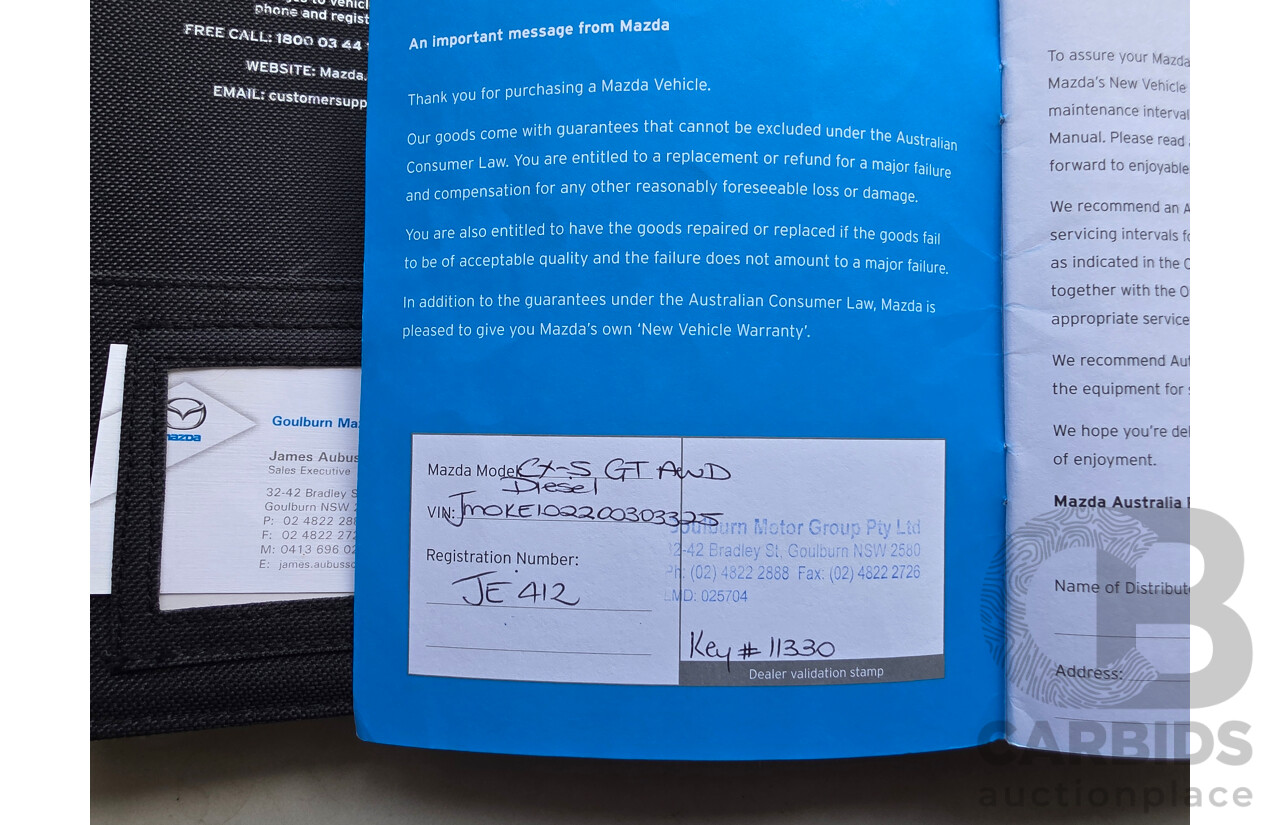 phone and regist
FREE CALL: 1800 03 44
WEBSITE: Mazda.
EMAIL: customersupp
mazda
Goulburn Ma
James Aubus
Sales Executive
32-42 Bradley S
Goulburn NSW 2
P: 02 4822 288
F: 02 4822 272
M: 0413 696 02
E: james.aubusso
An important message from Mazda
Thank you for purchasing a Mazda Vehicle.
Our goods come with guarantees that cannot be excluded under the Australian
Consumer Law. You are entitled to a replacement or refund for a major failure
and compensation for any other reasonably foreseeable loss or damage.
You are also entitled to have the goods repaired or replaced if the goods fail
to be of acceptable quality and the failure does not amount to a major failure.
In addition to the guarantees under the Australian Consumer Law, Mazda is
pleased to give you Mazda's own ‘New Vehicle Warranty’.
Mazda Model CX-5 GT AWD
Diesel
VIN: JM0KE102200303325
Registration Number:
JE 412
Goulburn Motor Group Pty Ltd
32-42 Bradley St, Goulburn NSW 2580
Ph: (02) 4822 2888 Fax: (02) 4822 2726
LMD: 025704
Key # 11330
Dealer validation stamp
To assure your Mazda
Mazda's New Vehicle
maintenance interval
Manual. Please read
forward to enjoyable
We recommend an A
servicing intervals fo
as indicated in the O
together with the O
appropriate service
We recommend Aut
the equipment for s
We hope you're del
of enjoyment.
Mazda Australia
Name of Distribut
Address:
CB
CARBIDS
auctionplace